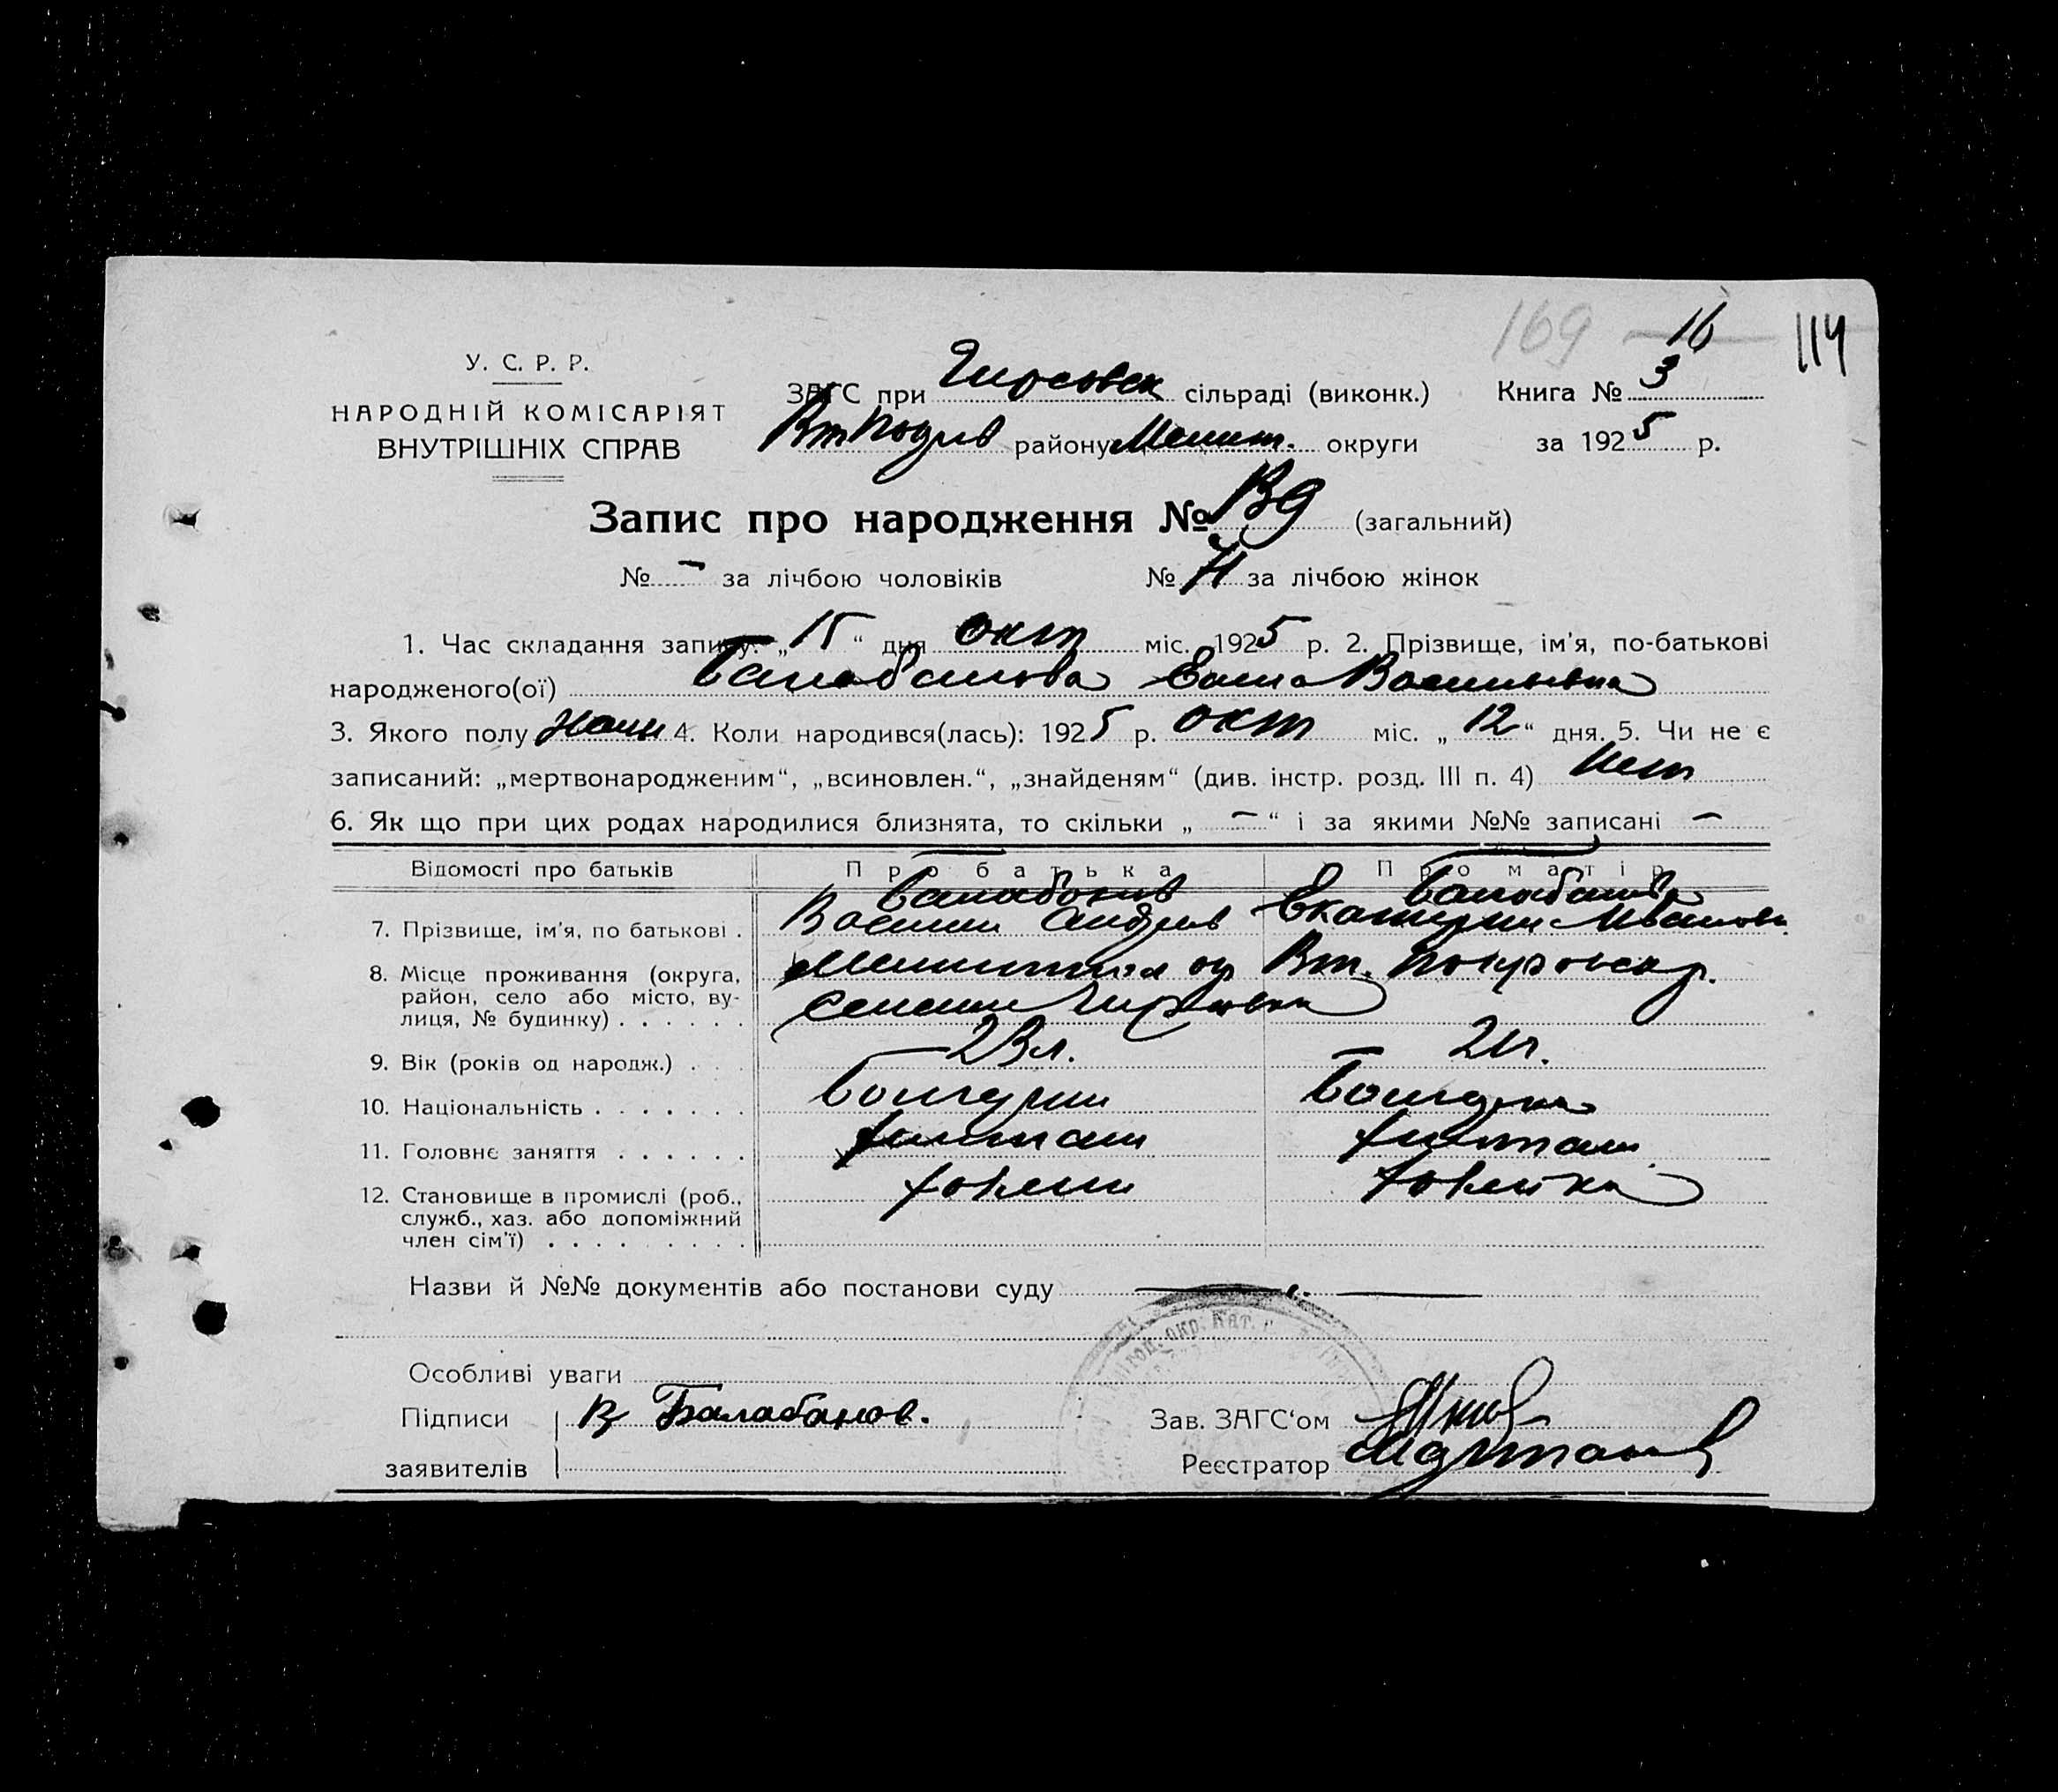 169 16 114
У. С. Р. Р.
НАРОДНІЙ КОМІСАРІЯТ
ВНУТРІШНІХ СПРАВ
ЗАГС при Гирсовск сільраді (виконк.) Книга № 3
району Мелит. округи за 1925 р.
Запис про народження № 139 (загальний)
№ - за лічбою чоловіків № 71 за лічбою жінок
1. Час складання запису: „15“ дня окт міс. 1925 р. 2. Прізвище, ім'я, по-батькові
народженого(ої) Балабанова Васильевна
3. Якого полу жен 4. Коли народився(лась): 1925 р. окт міс. „12“ дня. 5. Чи не є
записаний: „мертвонародженим“, „всиновлен.“, „знайденям“ (див. інстр. розд. III п. 4) Нет
6. Як що при цих родах народилися близнята, то скільки „ — “ і за якими №№ записані —
Відомості про батьків Про батька Про матір
Балабанов Балабанова
7. Прізвище, ім'я, по батькові . Василий Андреев Екатерина Иванова
8. Місце проживання (округа, Мелитопол ок Вт. Покровск р.
район, село або місто, ву-
лиця, № будинку) . . . . . . селении Гирсовка
9. Вік (років од народж.) . . . 23 л. 21 г.
10. Національність . . . . . . . Болгарин Болгарка
11. Головнє заняття . . . . . . хлебопаш хлебопаш
12. Становище в промислі (роб.,
служб., хаз. або допоміжний
член сім'ї) . . . . . . . . .
Назви й №№ документів або постанови суду —
Особливі уваги
Підписи В Балабанов. Зав. ЗАГС‘ом
заявителів Реєстратор